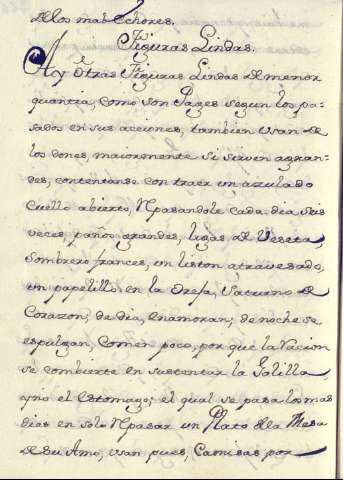 de los mas Echores.
Figuras Lindas.
Ay otras Figuras Lindas de menor
quantia, como son Pages segun los pa-
sados en sus acciones, tambien usan de
los dones, maiormente si sirven agran-
des, contentanse con traer un azulado
Cuello abierto, Repasandole cada dia seis
veces, paños grandes, ligas de Veseta,
Sombrero frances, un liston atravesado,
un papelillo en la Oreja, Saturno de
Corazon; de dia, enamoran; de noche se
espulgan, Comen poco, por que la Racion
se combierte en sustentar la Golilla,
y no el estomago; el qual se pasa los mas
dias en solo Repasar un Plato de la Mesa
de su Amo, usan pues, Camisas por